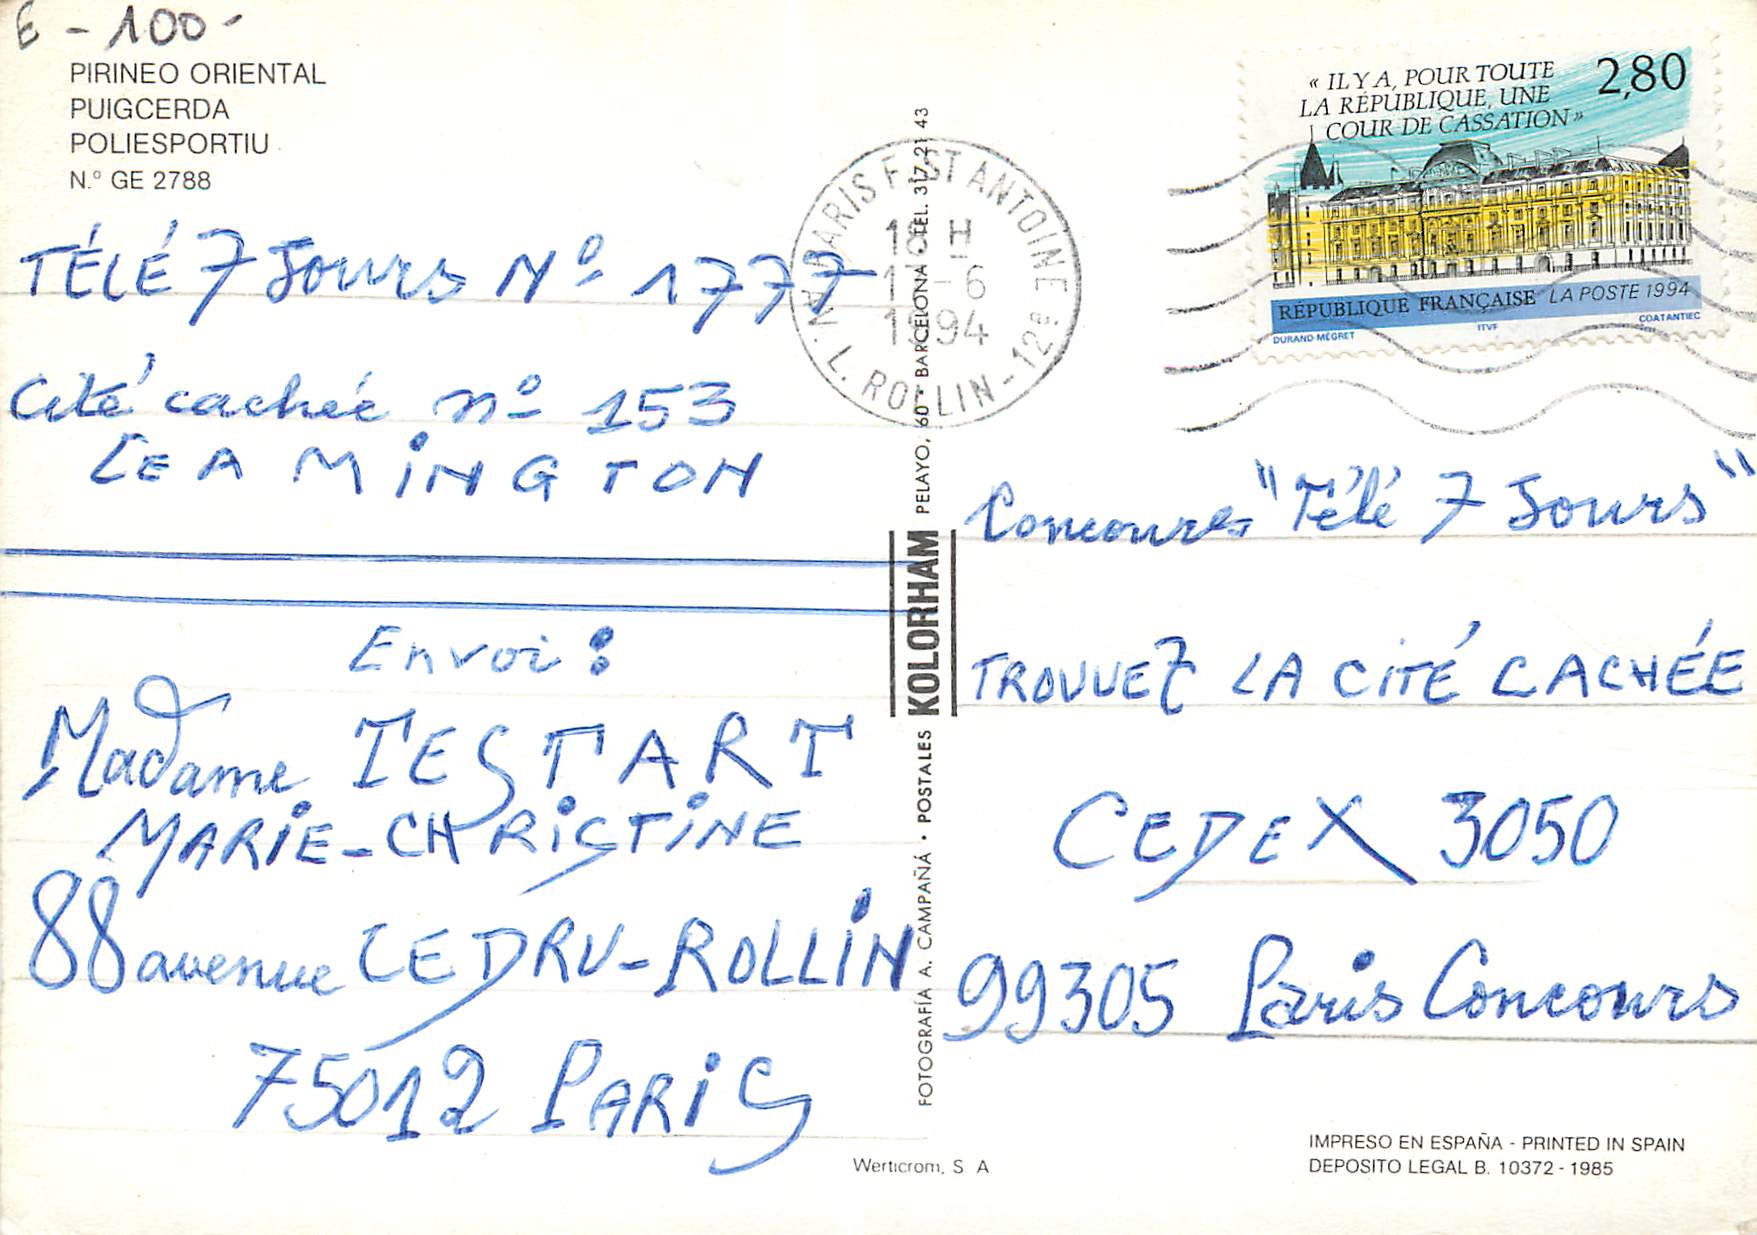 E - 100 -
PIRINEO ORIENTAL
PUIGCERDA
POLIESPORTIU
N.º GE 2788
TÉLÉ 7 Jours Nº 1777
Cité cachée nº 153
LEAMiNGTON
Envoi :
Madame TESTART
MARiE-CHRiSTiNE
88 avenue LEDRU-ROLLiN
75012 PARiS
FOTOGRAFÍA A. CAMPAÑÁ • POSTALES KOLORHAM PELAYO, 60 • BARCELONA TEL. 317 21 43
Werticrom, S A
PARIS F. ST ANTOINE
18 H
-6
1994
AV. L. ROLLIN - 12e
« IL Y A, POUR TOUTE
LA RÉPUBLIQUE, UNE
COUR DE CASSATION »
2,80
RÉPUBLIQUE FRANÇAISE LA POSTE 1994
DURAND-MÉGRET ITVF COATANTIEC
Concours "Télé 7 Jours"
TROUVEZ LA CiTÉ CACHÉE
CEDEX 3050
99305 Paris Concours
IMPRESO EN ESPAÑA - PRINTED IN SPAIN
DEPOSITO LEGAL B. 10372 - 1985